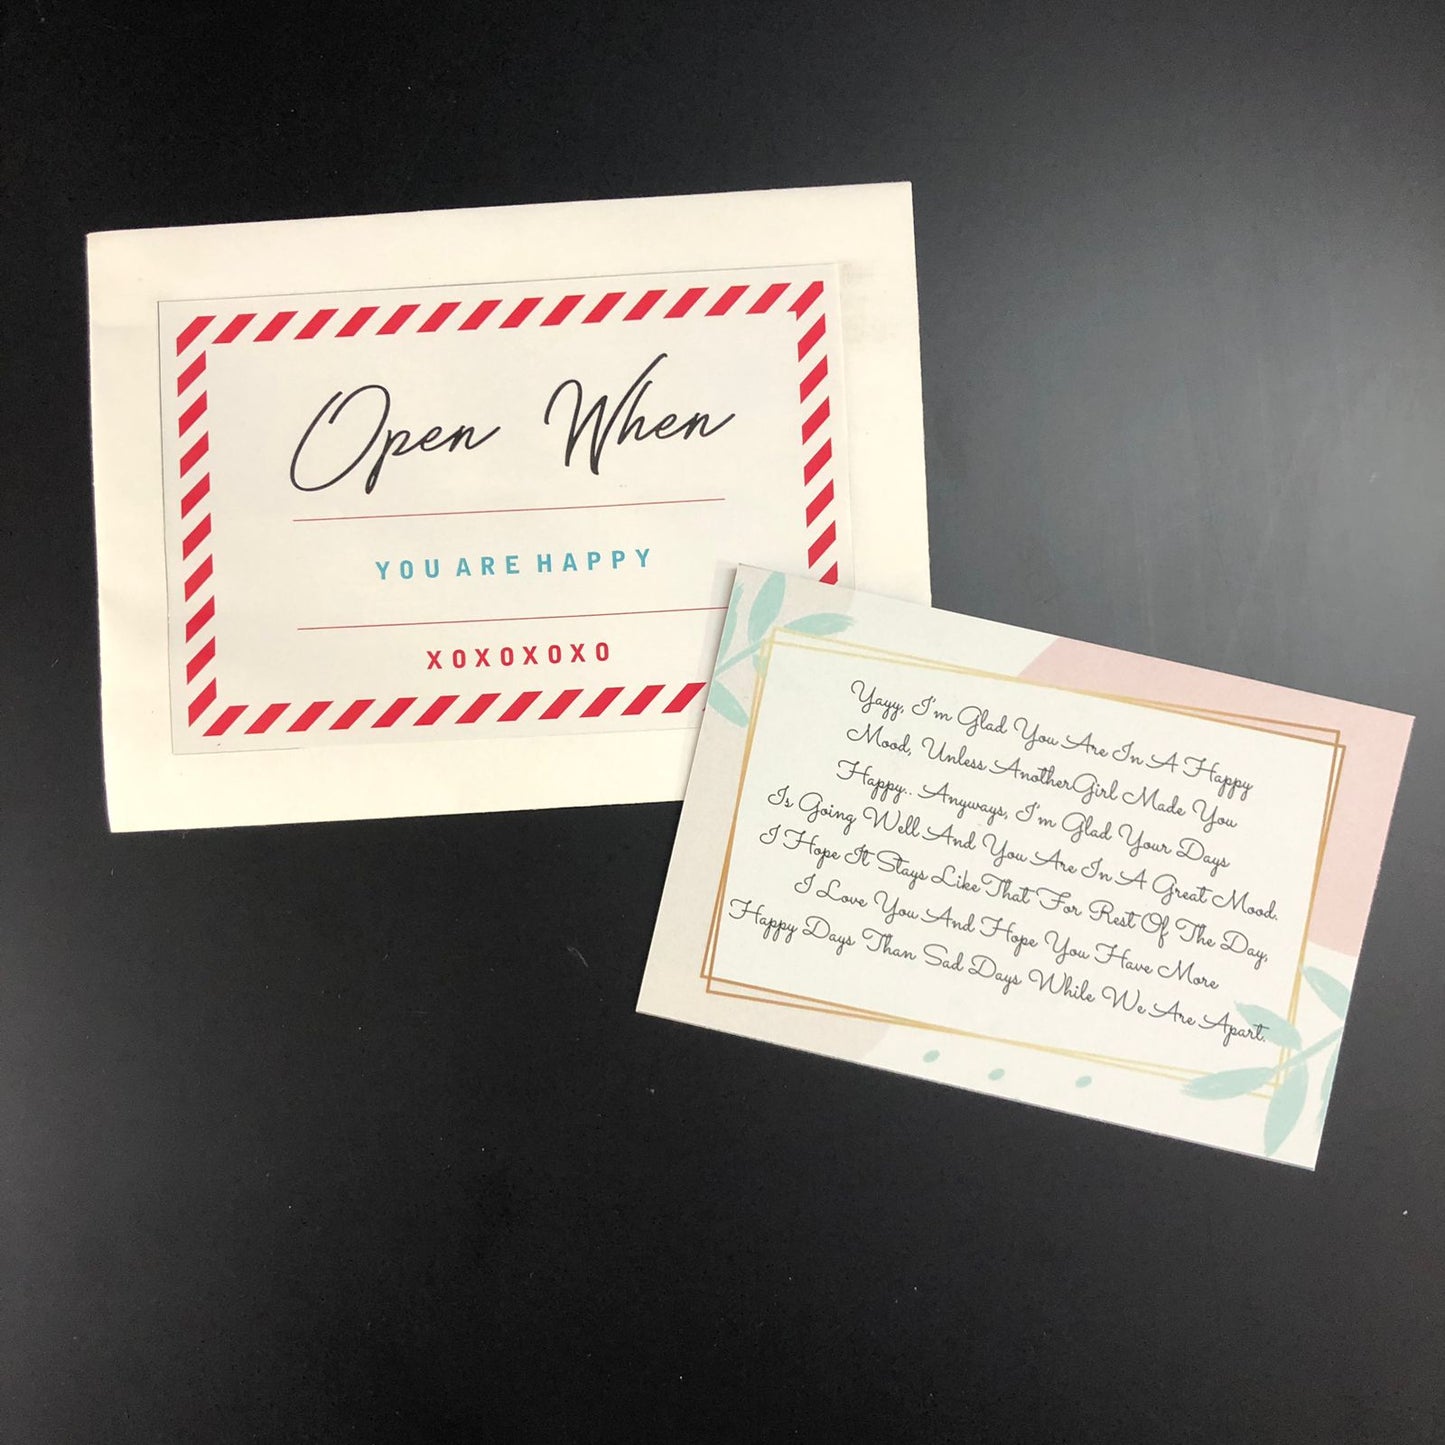 Open When
YOU ARE HAPPY
XOXOXOXO
Yayy, I'm Glad You Are In A Happy
Mood, Unless AnotherGirl Made You
Happy.. Anyways, I'm Glad Your Days
Is Going Well And You Are In A Great Mood.
I Hope It Stays Like That For Rest Of The Day,
I Love You And Hope You Have More
Happy Days Than Sad Days While We Are Apart.